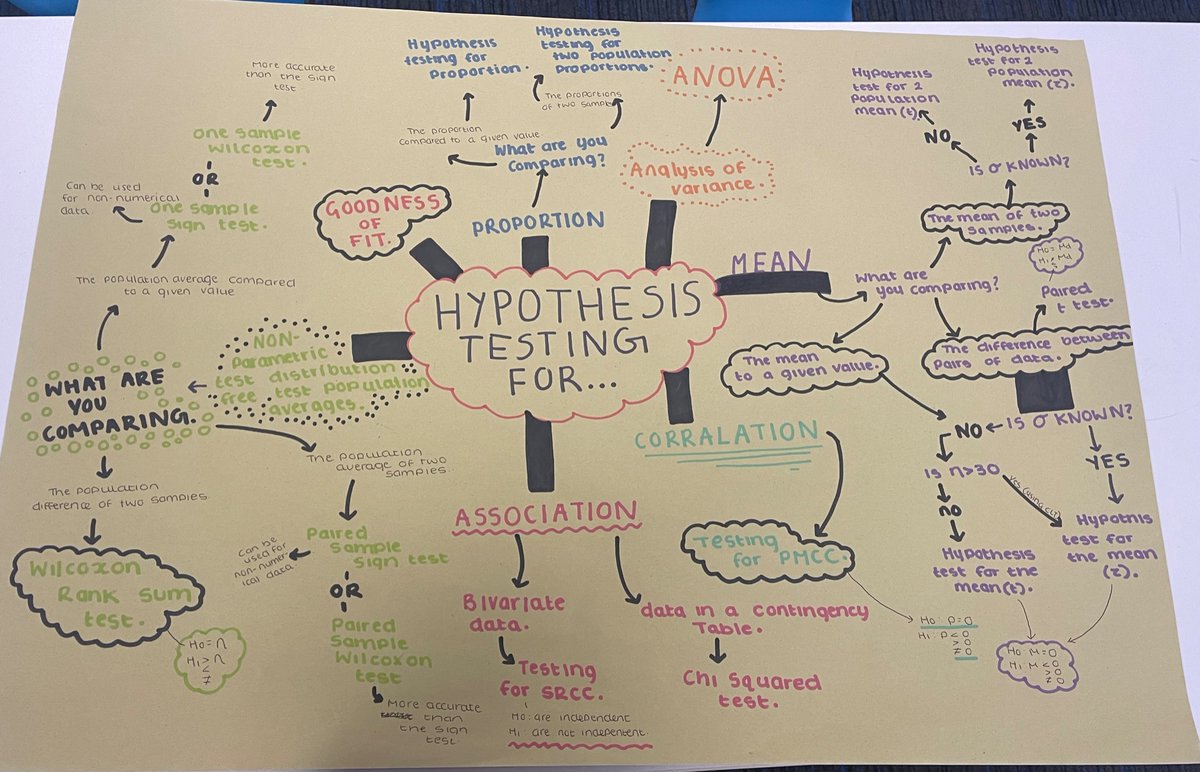 HYPOTHESIS
TESTING
FOR...
GOODNESS
OF
FIT.
PROPORTION
What are you
Comparing?
The proportion
compared to a given value.
Hypothesis
testing for
proportion.
The proportions
of two samples
Hypothesis
testing for
two population
proportions.
Analysis of
variance.
ANOVA
MEAN
What are
you comparing?
The mean of two
samples.
Is σ KNOWN?
NO
Hypothesis
test for 2
population
mean (t).
YES
Hypothesis
test for 2
population
mean (z).
The difference between
pairs of data.
Paired
t test.
H0 = Md
H1 ≠ Md
The mean
to a given value.
Is σ KNOWN?
NO
Is n>30
no
Hypothesis
test for the
mean (t).
yes (using CLT)
YES
Hypothnis
test for
the mean
(z).
H0: M=0
H1 M<0
>0
≠0
CORRALATION
Testing
for PMCC.
H0: P=0
H1: P<0
>0
≠0
ASSOCIATION
Bivariate
data.
Testing
for SRCC.
H0: are independent
H1: are not indepentent.
data in a contingency
Table.
Chi Squared
test.
NON-
Parametric
test distribution
free test population
averages.
WHAT ARE
YOU
COMPARING.
The population average compared
to a given value
One sample
sign test.
Can be used
for non-numerical
data
OR
One sample
Wilcoxon
test.
More accurate
than the sign
test
The population
average of two
samples.
Paired
Sample
Sign test
Can be
used for
non-numer-
ical data.
OR
Paired
Sample
Wilcoxon
test
More accurate
than
the sign
test.
The population
difference of two samples
Wilcoxon
Rank Sum
test.
H0 = n
H1 > n
<
≠